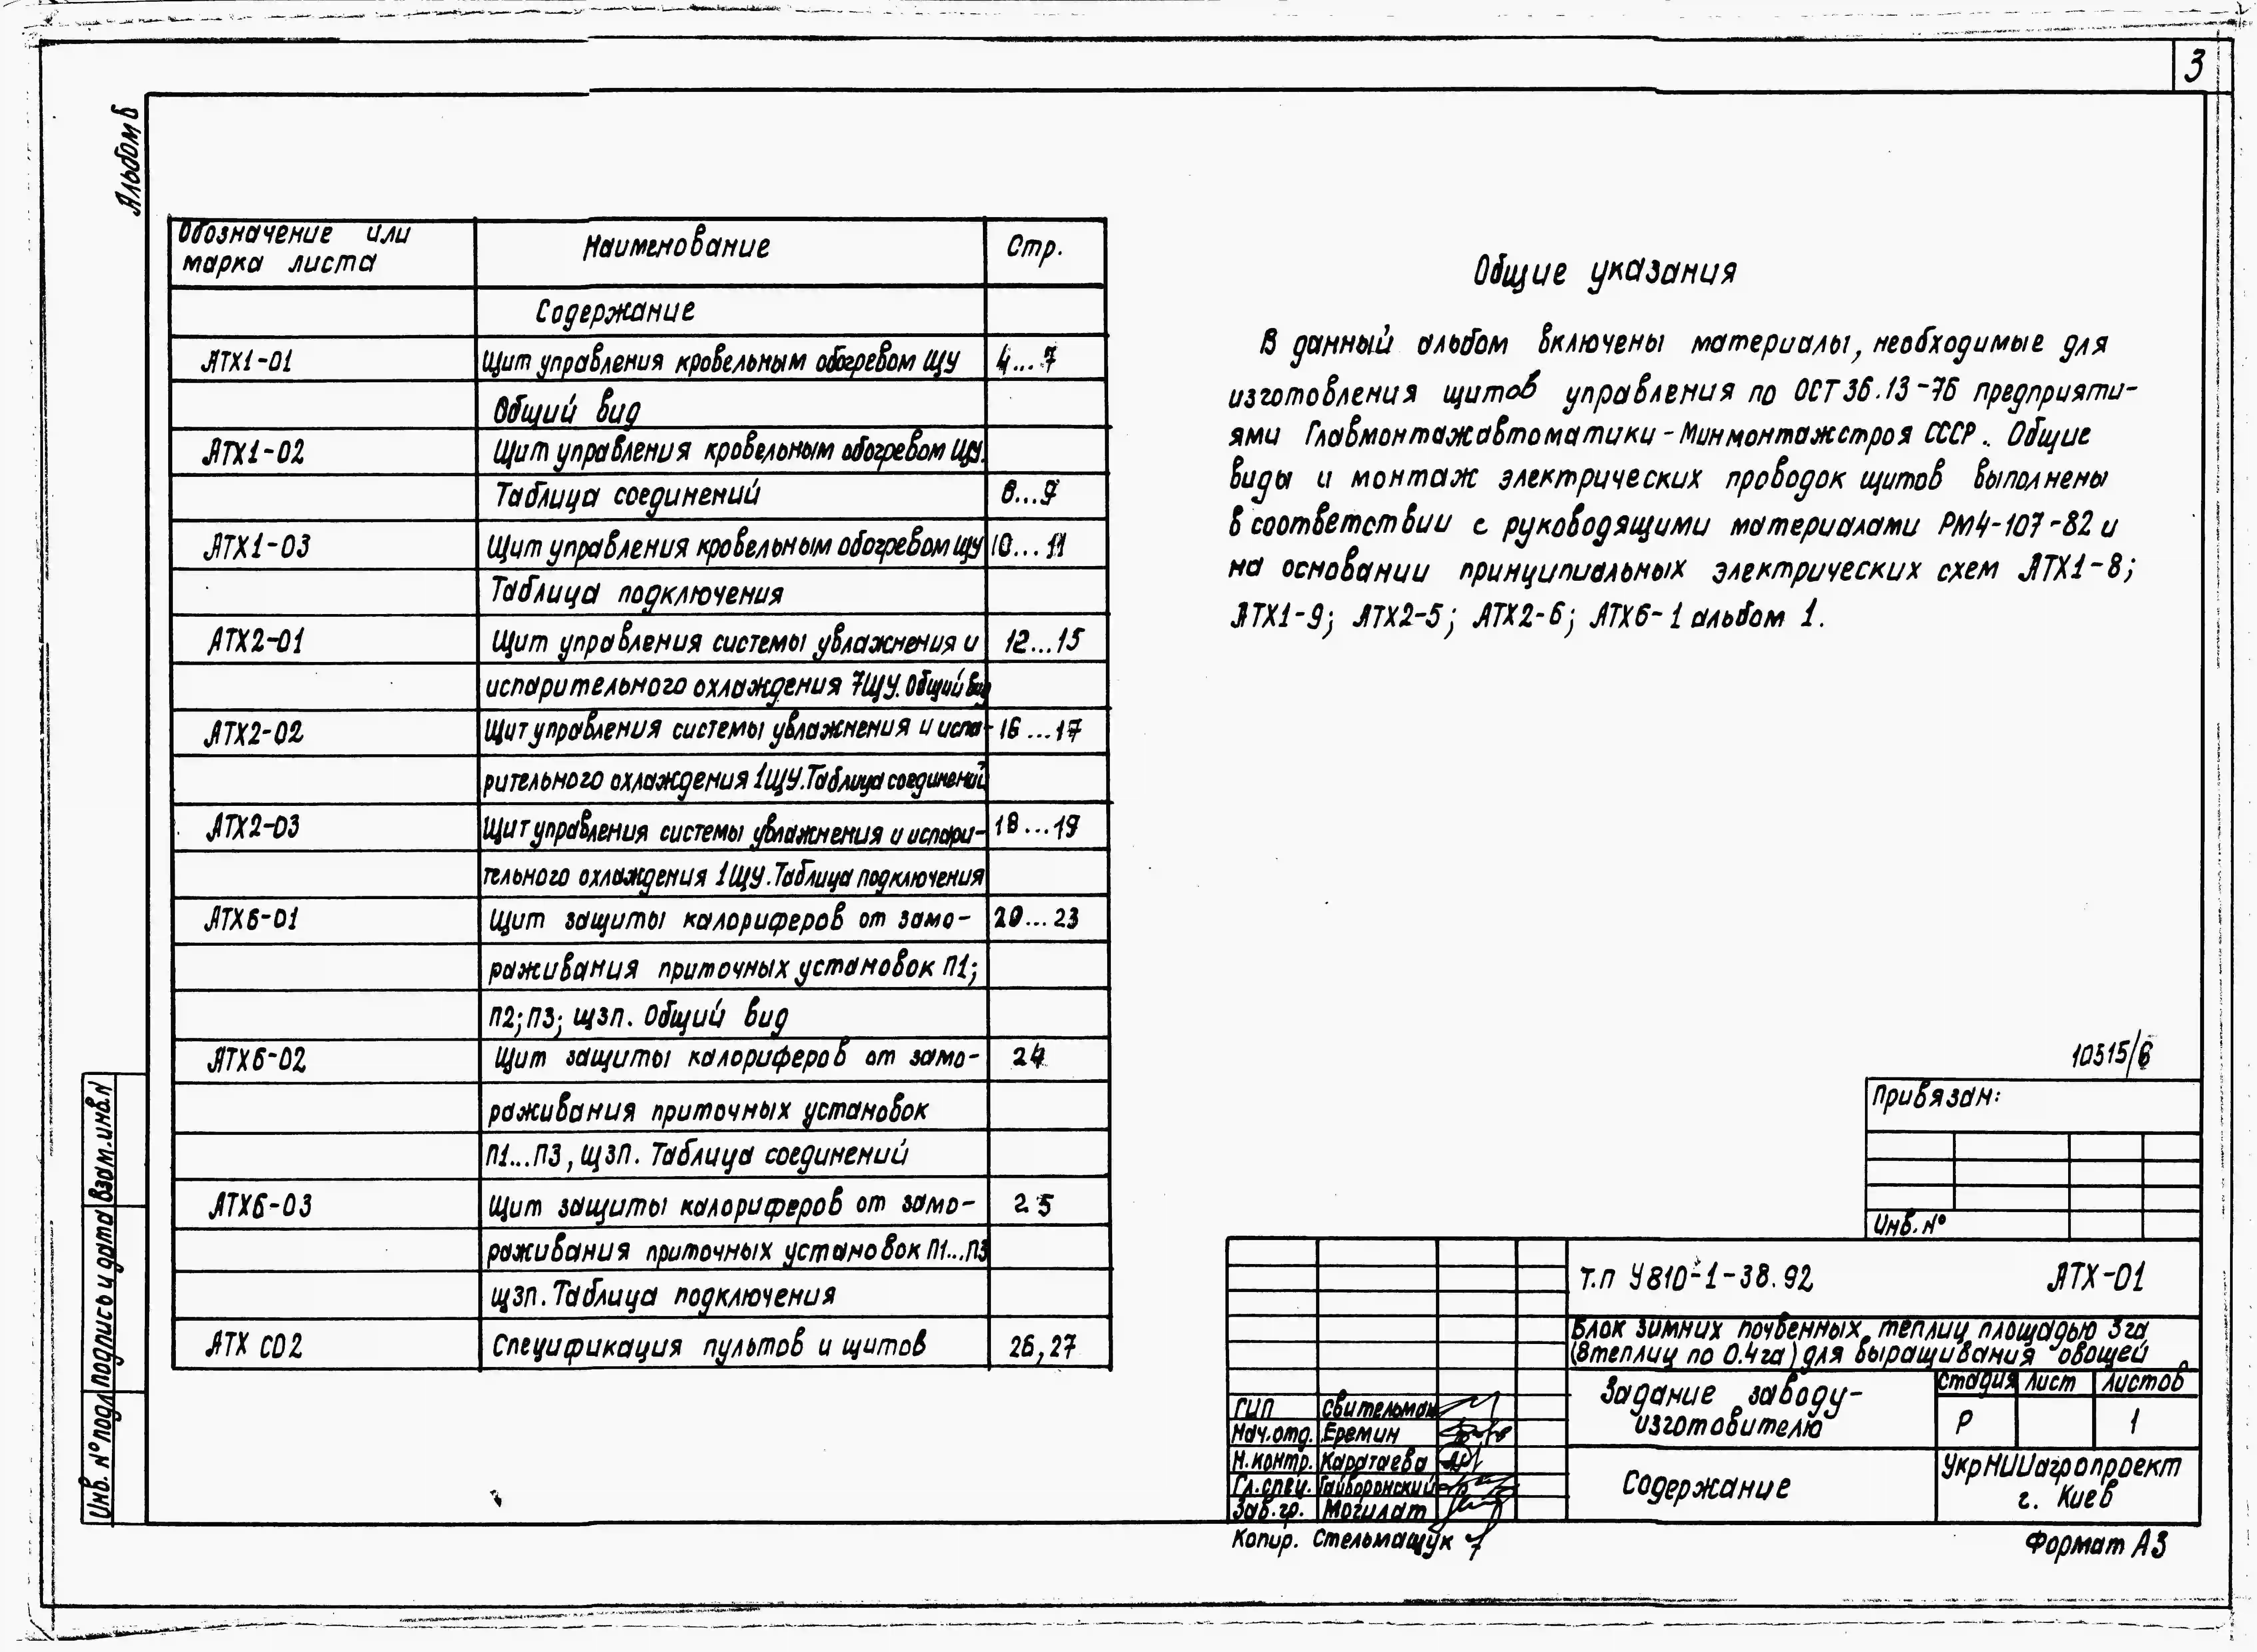 3
Альбом 6
Обозначение или
марка листа
Наименование
Стр.
Содержание
АТХ1-01 Щит управления кровельным обогревом ЩУ 4...7
Общий вид
АТХ1-02 Щит управления кровельным обогревом ЩУ.
Таблица соединений 8...9
АТХ1-03 Щит управления кровельным обогревом ЩУ 10...11
Таблица подключения
АТХ2-01 Щит управления системы увлажнения и 12...15
испарительного охлаждения 7ЩУ. Общий вид
АТХ2-02 Щит управления системы увлажнения и испа- 16...17
рительного охлаждения 1ЩУ. Таблица соединений
АТХ2-03 Щит управления системы увлажнения и испари- 18...19
тельного охлаждения 1ЩУ. Таблица подключения
АТХ6-01 Щит защиты калориферов от замо- 20...23
раживания приточных установок П1;
П2; П3; ЩЗП. Общий вид
АТХ6-02 Щит защиты калориферов от замо- 24
раживания приточных установок
П1...П3, ЩЗП. Таблица соединений
АТХ6-03 Щит защиты калориферов от замо- 25
раживания приточных установок П1...П3
ЩЗП. Таблица подключения
АТХ СО2 Спецификация пультов и щитов 26,27
Общие указания
В данный альбом включены материалы, необходимые для
изготовления щитов управления по ОСТ 36.13-76 предприяти-
ями Главмонтажавтоматики - Минмонтажстроя СССР. Общие
виды и монтаж электрических проводок щитов выполнены
в соответствии с руководящими материалами РМ4-107-82 и
на основании принципиальных электрических схем АТХ1-8;
АТХ1-9; АТХ2-5; АТХ2-6; АТХ6-1 альбом 1.
10515/6
Привязан:
Инв. №
Т.п У810-1-38.92 АТХ-01
Блок зимних почвенных теплиц площадью 3га
(8теплиц по 0.4га) для выращивания овощей
Задание заводу-
изготовителю
Стадия Лист Листов
Р 1
Содержание
УкрНИИагропроект
г. Киев
ГИП Свительман
Нач.отд. Еремин
Н.контр. Каратаева
Гл.спец. Гайворонский
Зав.гр. Могилат
Копир. Стельмащук
Формат А3
Взам.инв.N
Подпись и дата
Инв. № подл